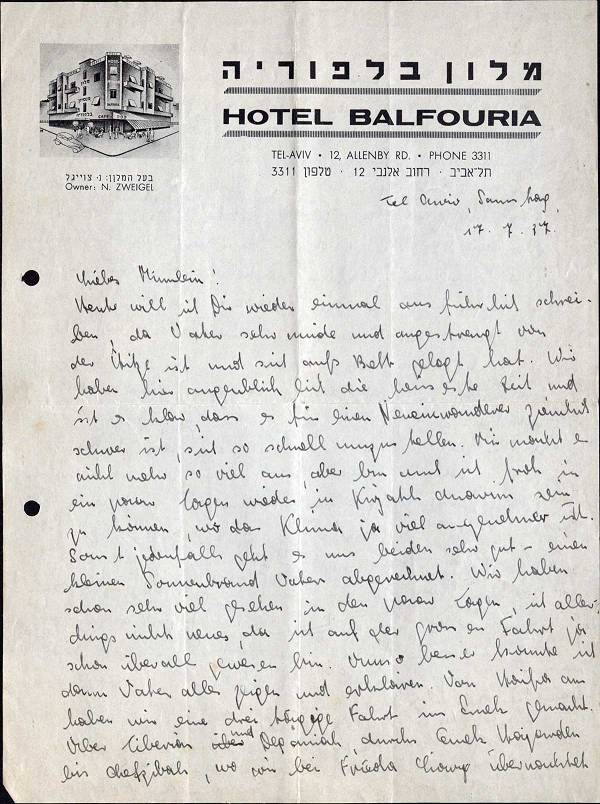 מלון בלפוריה
HOTEL BALFOURIA
TEL-AVIV • 12, ALLENBY RD. • PHONE 3311
תל-אביב • רחוב אלנבי 12 • טלפון 3311
בעל המלון: נ. צוייגל
Owner: N. ZWEIGEL
Tel Aviv,
17. 7. 37.
Liebes
Heute will ich Dir wieder einmal ausführlich schrei-
ben, da Vater sehr müde und angestrengt von
der Hitze ist und sich aufs Bett gelegt hat. Wir
haben hier augenblicklich die heisseste Zeit und
ist es klar, dass es für einen Neueinwanderer ziemlich
schwer ist, sich so schnell umzustellen. Mir macht es
nicht mehr so viel aus, aber bin ich froh in
ein paar Tagen wieder in Kirjath Anavim sein
zu können, wo das Klima ja viel angenehmer ist.
Sonst jedenfalls geht es uns beiden sehr gut - einen
kleinen Sonnenbrand Vaters abgerechnet. Wir haben
schon sehr viel gesehen in den paar Tagen, ist aller-
dings nichts neues, da ich auf der grossen Fahrt ja
schon überall gewesen bin. Umso besser konnte ich
denn Vater alles zeigen und erklären. Von Haifa aus
haben wir eine dreitägige Fahrt im Emek gemacht.
Über Tiberias und Degániah, durchs Emek
bis Chefzibah, wo wir bei Frieda übernachtet